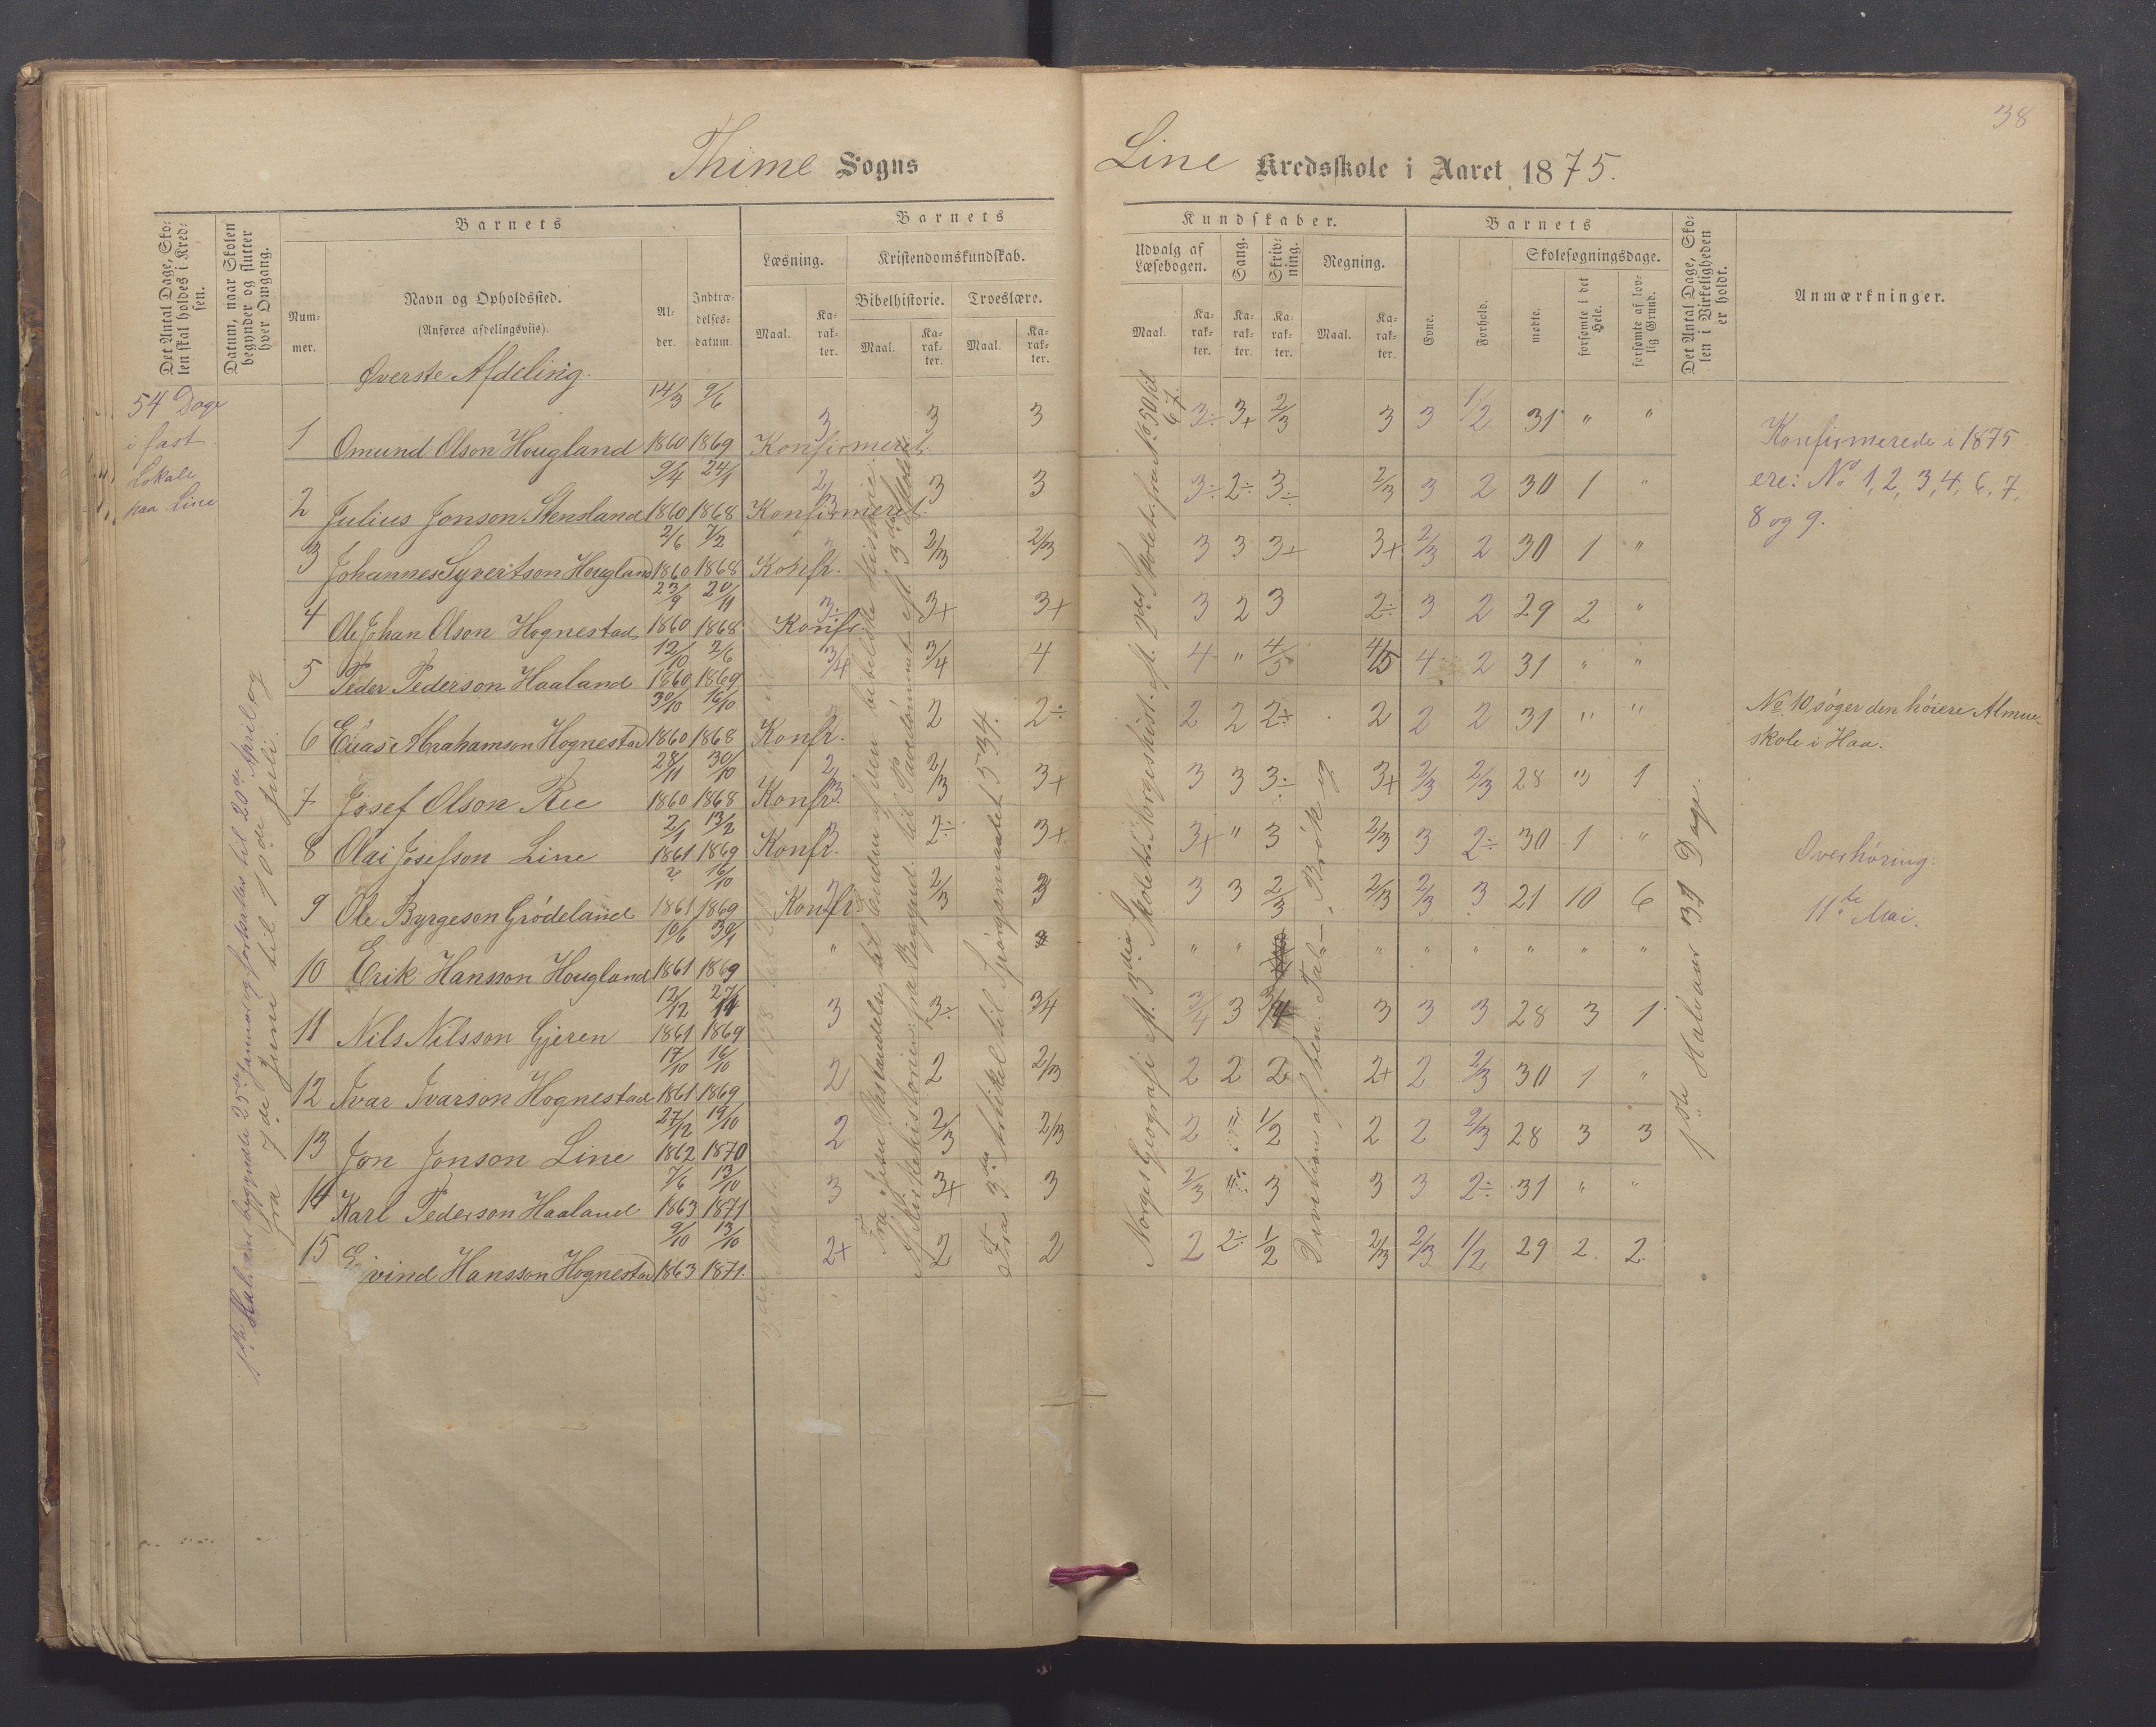 38
Thime Sogns Line Kredsskole i Aaret 1875.
Det Antal Dage, Skolen skal holdes i Kredsen.
Datum, naar Skolen begynder og slutter hver Omgang.
Barnets
Nummer.
Navn og Opholdssted.
(Anføres afdelingsviis).
Alder.
Indtrædelsesdatum.
Barnets Kundskaber.
Læsning.
Maal. Karakter.
Kristendomskundskab.
Bibelhistorie. Troeslære.
Maal. Karakter. Maal. Karakter.
Udvalg af Læsebogen.
Maal. Karakter.
Sang. Karakter.
Skrivning. Karakter.
Regning.
Maal. Karakter.
Barnets
Evne. Forhold.
Skolesøgningsdage.
mødte. forsømte i det Hele. forsømte af lovlig Grund.
Det Antal Dage, Skolen i Virkeligheden er holdt.
Anmærkninger.
Øverste Afdeling.
54 Dage
i fast
Lokale
paa Line
1 Omund Olson Hougland 14/3 1860 9/6 1869 Konfirmeret. 3 3 3 3÷ 3+ 2/3 3 3 1/2 31 " "
2 Julius Jonson Stensland 9/4 1860 24/1 1868 Konfirmeret. 2/3 3 3 3÷ 2÷ 3÷ 2/3 3 2 30 1 "
3 Johannes Syvertson Hougland 2/6 1860 7/2 1868 Konfr. 2/3 2/3 3 3 3+ 3+ 2/3 2 30 1 "
4 Ole Johan Olson Hognestad 23/9 1860 20/11 1868 Konfr. 3÷ 3+ 3+ 3 2 3 2÷ 3 2 29 2 "
5 Peder Pederson Haaland 12/10 1860 2/6 1869 3/4 3/4 4 4 " 4/5 4/5 4 2 31 " "
6 Elias Abrahamson Hognestad 30/10 1860 16/10 1868 Konfr. 2 2÷ 2 2 2+ 2 2 2 31 " "
7 Josef Olson Ree 28/11 1860 30/10 1868 Konfr. 2/3 2/3 3+ 3 3 3÷ 3+ 2/3 2/3 28 3 1
8 Olai Josefson Line 2/1 1861 13/2 1869 Konfr. 2÷ 3+ 3+ " 3 2/3 3 2÷ 30 1 "
9 Ole Byrgeson Grødeland ? 1861 16/10 1869 Konfr. 2/3 3 3 3 2/3 2/3 2/3 3 21 10 6
10 Erik Hansson Hougland 10/6 1861 30/1 1869 " " " " " " " " " "
11 Nils Nilsson Gjeren 12/12 1861 27/11 1869 3 3÷ 3/4 3/4 3 3/4 3 3 3 28 3 1
12 Ivar Ivarson Hognestad 17/10 1861 16/10 1869 2 2 2/3 2 2 2 2+ 2 2/3 30 1 "
13 Jon Jonson Line 27/12 1862 19/10 1870 2 2/3 2/3 2 " 1/2 2 2 2/3 28 3 3
14 Karl Pederson Haaland 7/6 1863 13/10 1871 3 3+ 3 2/3 " 3 3 3 2÷ 31 " "
15 Eivind Hansson Hognestad 9/10 1863 13/10 1871. 2+ 2 2 2 2÷ 1/2 2/3 2/3 1/2 29 2. 2
1ste Halvaar begyndte 25de Januar og fortsattes til 20de April og
fra 7de Juni til 10de Juli.
Fra Jesu Opstandelse til Enden af den bibelske Historie.
Af Kirkehistorien fra Begynd. til Pavedømmet efter 3die Skolet.
Fra 3die Artikel til Spørgsmaalet 534.
Norges Geografi e. 3die Skolet. Norgeshist. e. 2det Skolet. fra No 50 til 67.
Division af ben. Tal — Brøk og
1ste Halvaar 31 Dage.
Konfirmerede i 1875
ere: No 1, 2, 3, 4, 6, 7,
8 og 9.
No 10 søger den høiere Almue-
skole i Haa.
Overhøring:
11te Mai.